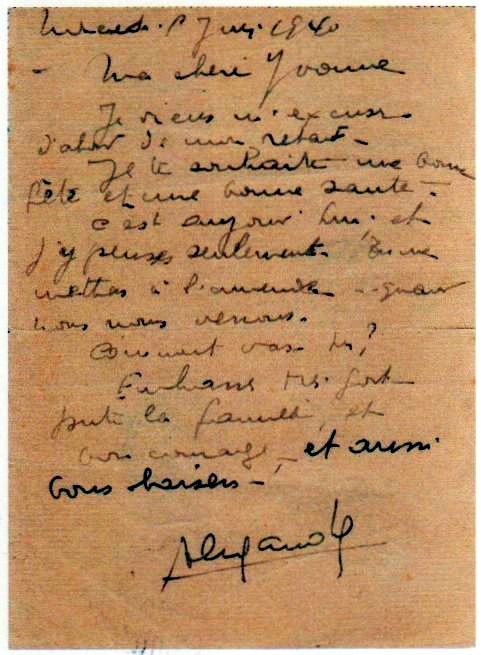 Mercredi 1 Juin 1940
- Ma chéri Yvonne
Je viens m'excuser
d'abor de mon retard -
Je te souhaite une bonne
fête et une bonne santé -
c'est aujour'hui et
j'y penses seulement. Tu me
mettras à l'amende - quand
nous nous verrons.
Comment vas tu?
Embrasse très fort
toute la famille, et
bon courage - et aussi
bons baisers -